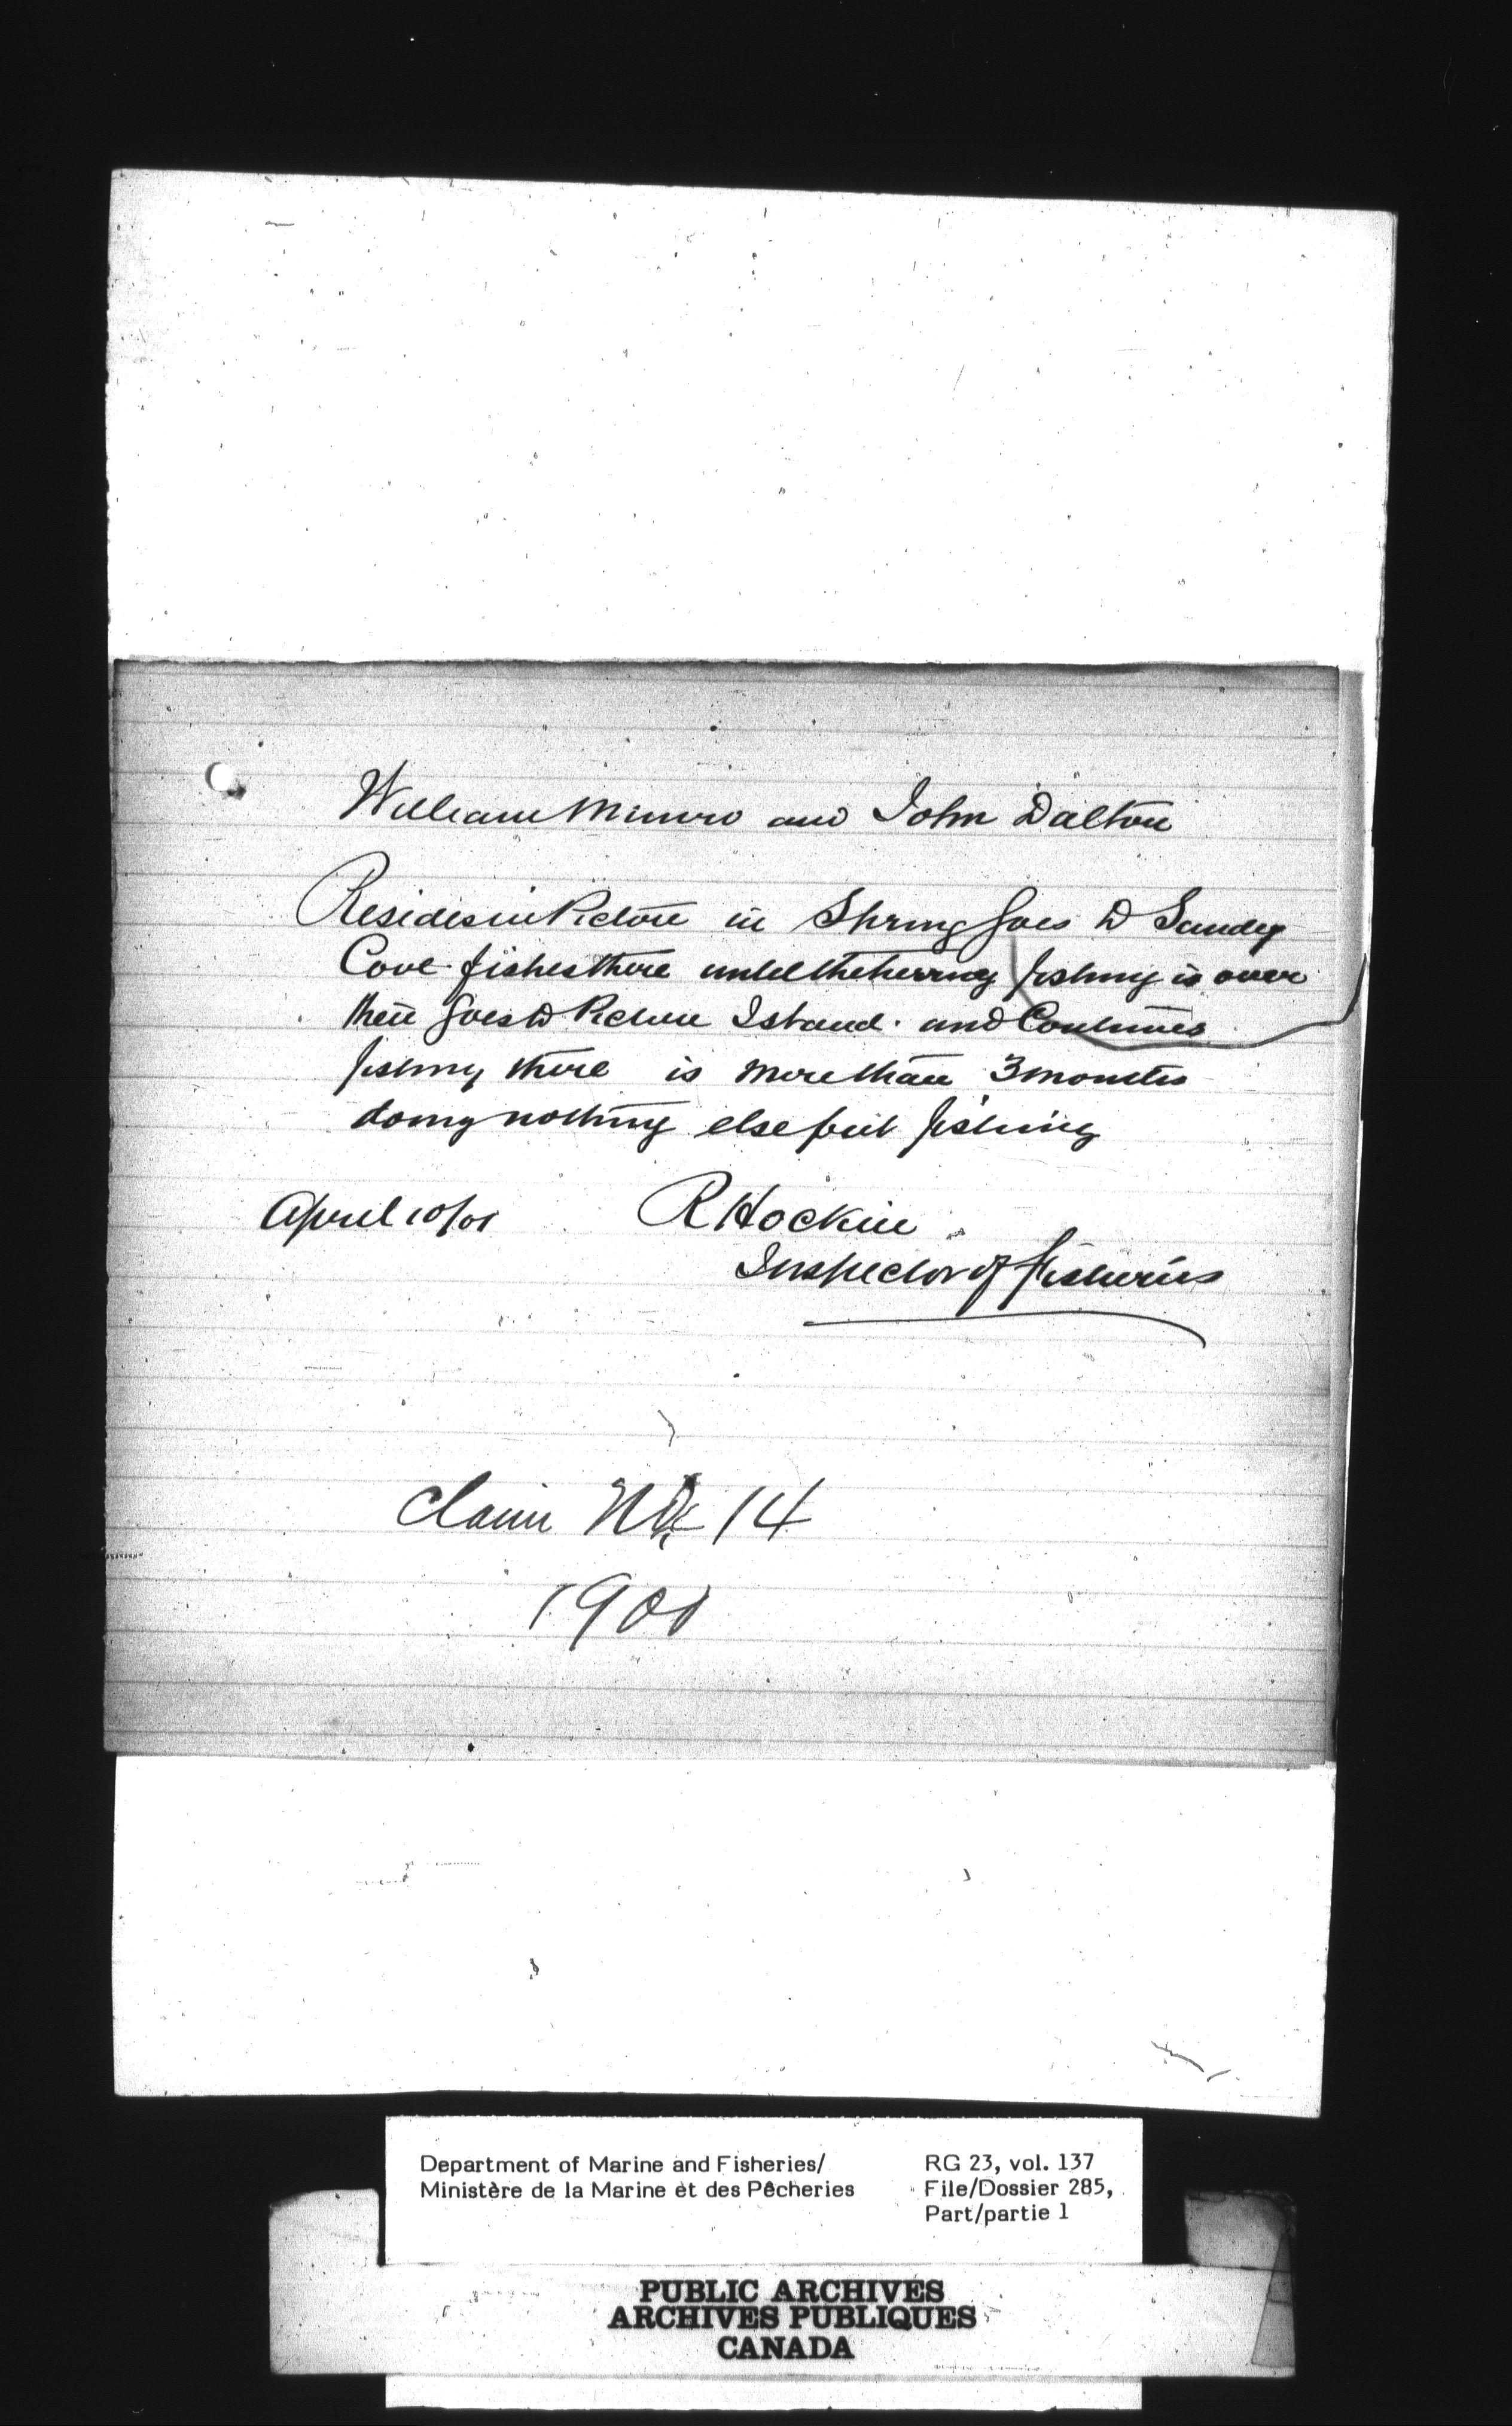 William Munro and John Dalton
Resides in Pictou in Spring goes to Sandy
Cove fishes there until the herring fishing is over
then goes to Pictou Island. and Continues
fishing there is more than 3 months
doing nothing else but fishing
April 10/01 R Hockin
Inspector of Fisheries
Claim No 14
1900
Department of Marine and Fisheries/ RG 23, vol. 137
Ministère de la Marine et des Pêcheries File/Dossier 285,
Part/partie 1
PUBLIC ARCHIVES
ARCHIVES PUBLIQUES
CANADA